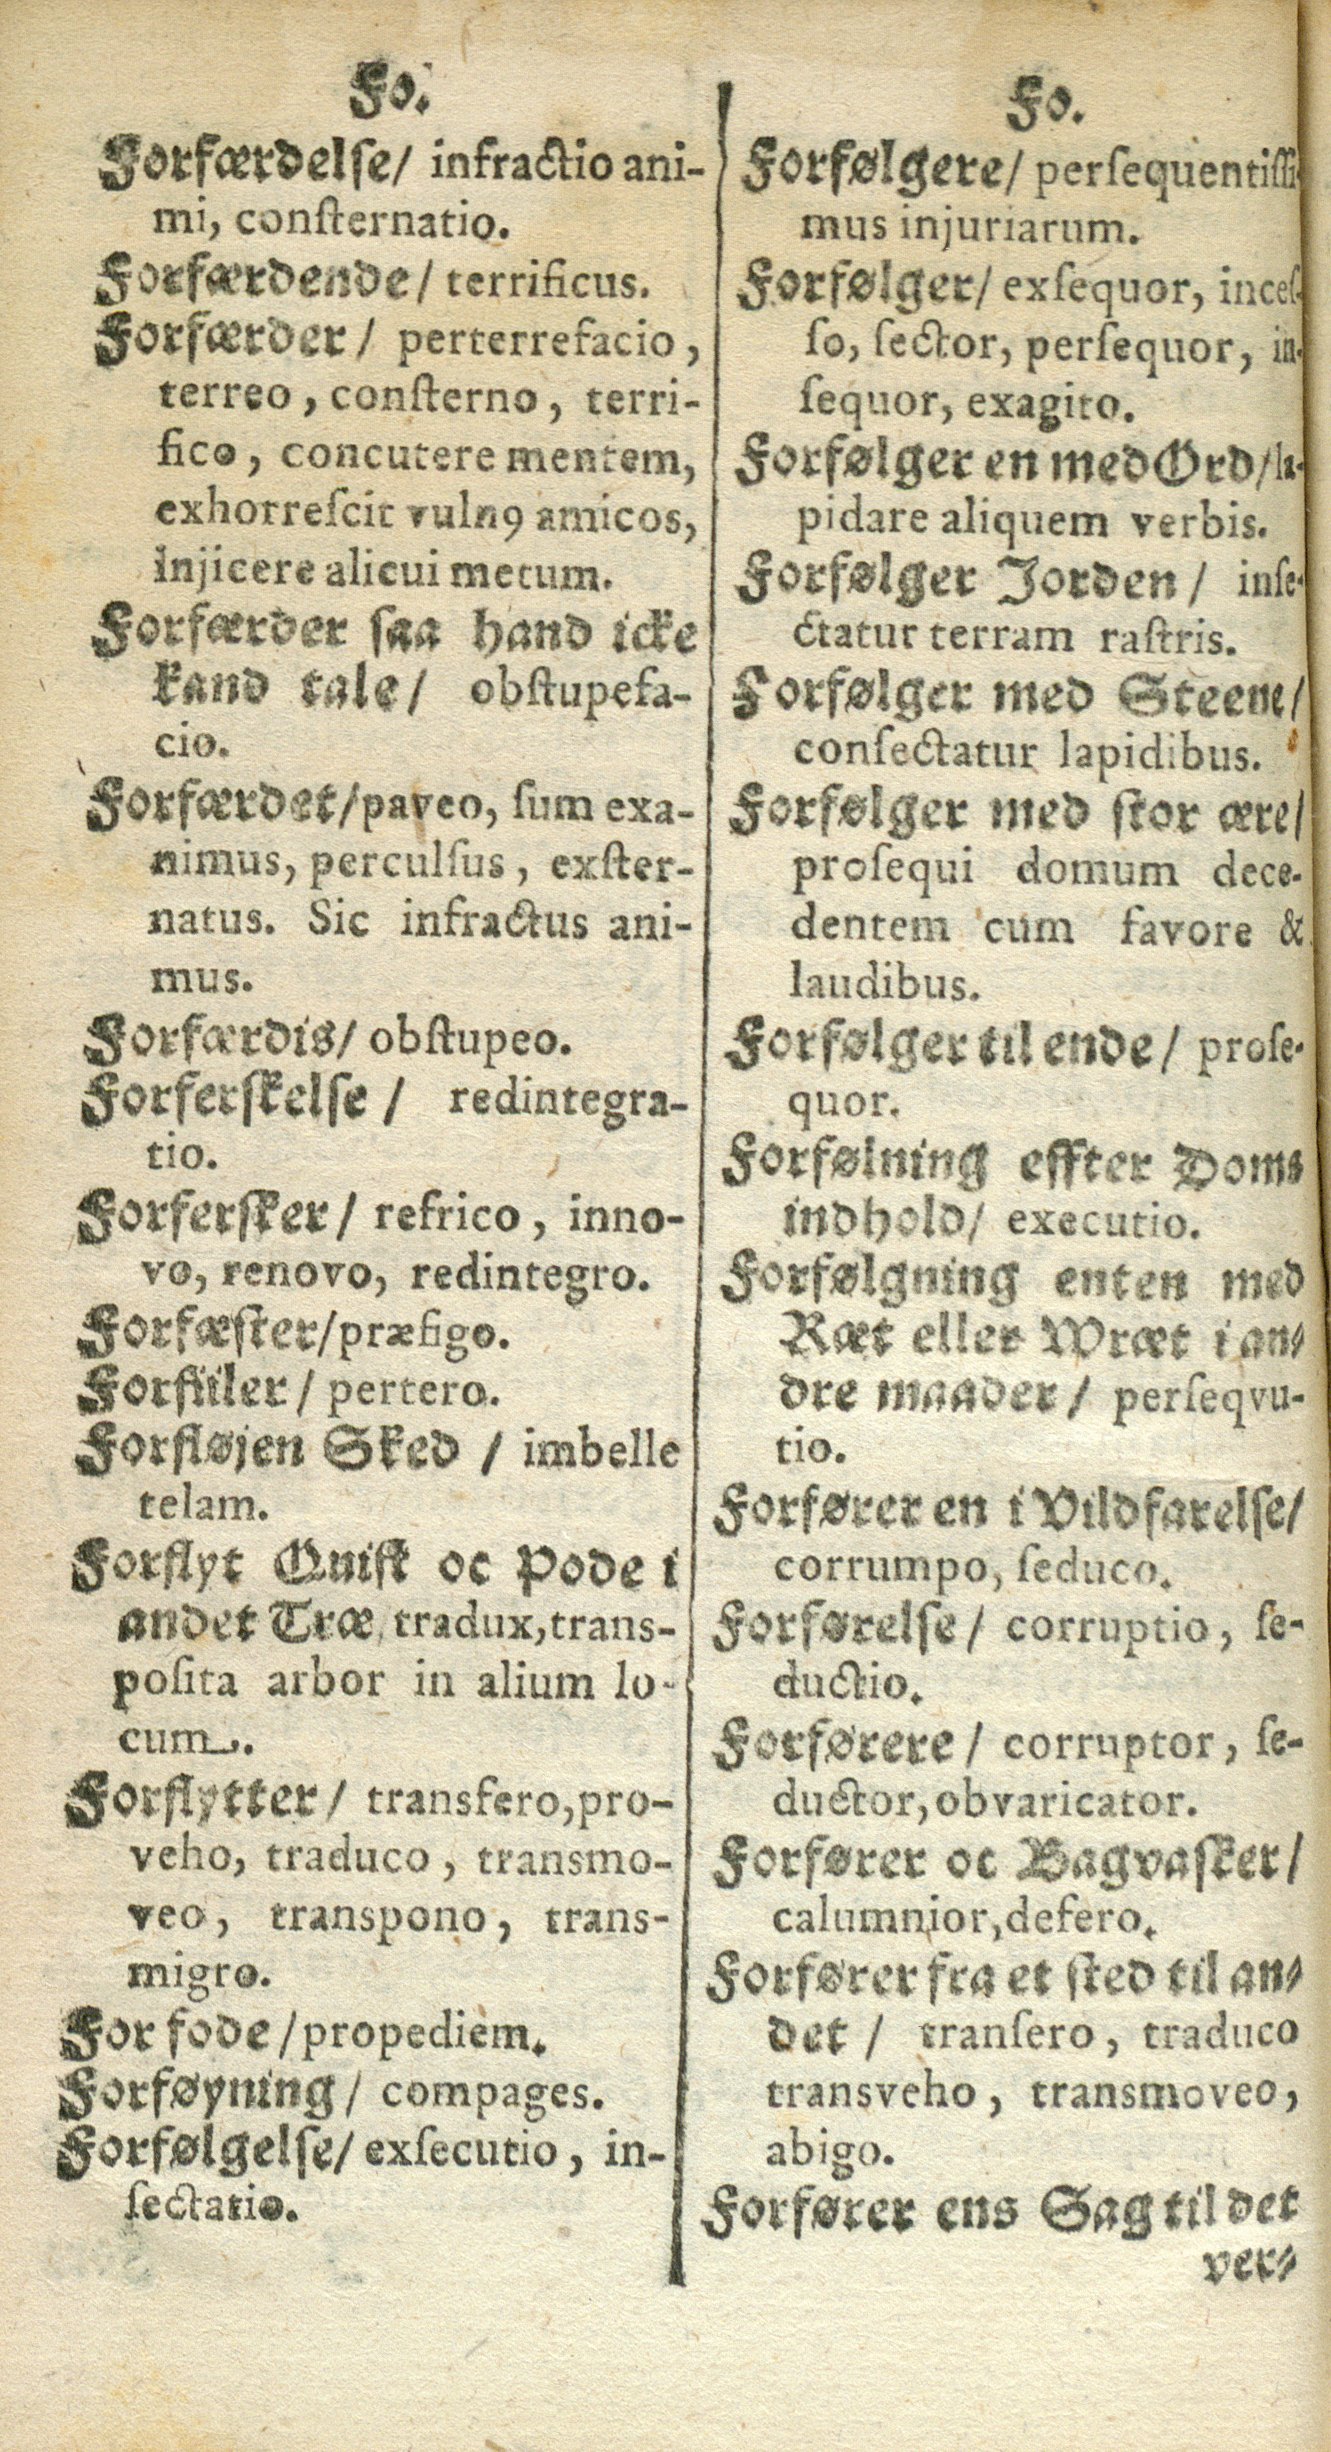 Fo.
Forfærdelſe/ infractio ani-
mi, conſternatio.
Forfærdende/ terrificus.
Forfærder/ perterrefacio,
terreo, conſterno, terri-
fico, concutere mentem,
exhorreſcit vulnꝰ amicos,
injicere alicui metum.
Forfærder ſaa hand icke
kand tale/ obſtupefa-
cio.
Forfærdet/paveo, ſum exa-
nimus, perculſus, exſter-
natus. Sic infractus ani-
mus.
Forfærdis/ obſtupeo.
Forferſkelſe/ redintegra-
tio.
Forferſker/ refrico, inno-
vo, renovo, redintegro.
Forfæſter/præfigo.
Forfiiler/ pertero.
Forfløjen Sked/ imbelle
telam.
Forflyt Quiſt oc Pode i
andet Træ/ tradux,trans-
poſita arbor in alium lo-
cum.
Forflytter/ transfero,pro-
veho, traduco, transmo-
veo, transpono, trans-
migro.
For fode/propediem.
Forføyning/ compages.
Forfølgelſe/ exſecutio, in-
ſectatio.
Fo.
Forfølgere/ perſequentiſſi-
mus injuriarum.
Forfølger/ exſequor, inceſ-
ſo, ſector, perſequor, in-
ſequor, exagito.
Forfølger en med Ord/la-
pidare aliquem verbis.
Forfølger Jorden/ inſe-
ctatur terram raſtris.
Forfølger med Steene/
conſectatur lapidibus.
Forfølger med ſtor ære/
proſequi domum dece-
dentem cum favore &
laudibus.
Forfølger til ende/ proſe-
quor.
Forfølning effter Doms
indhold/ executio.
Forfølgning enten med
Ræt eller Wræt i an-
dre maader/ perſeqvu-
tio.
Forfører en i Vildfarelſe/
corrumpo, ſeduco.
Forførelſe/ corruptio, ſe-
ductio.
Forførere/ corruptor, ſe-
ductor, obvaricator.
Forfører oc Bagvaſker/
calumnior,defero.
Forfører fra et ſted til an-
det/ tranſero, traduco
transveho, transmoveo,
abigo.
Forfører ens Sag til det
ver-